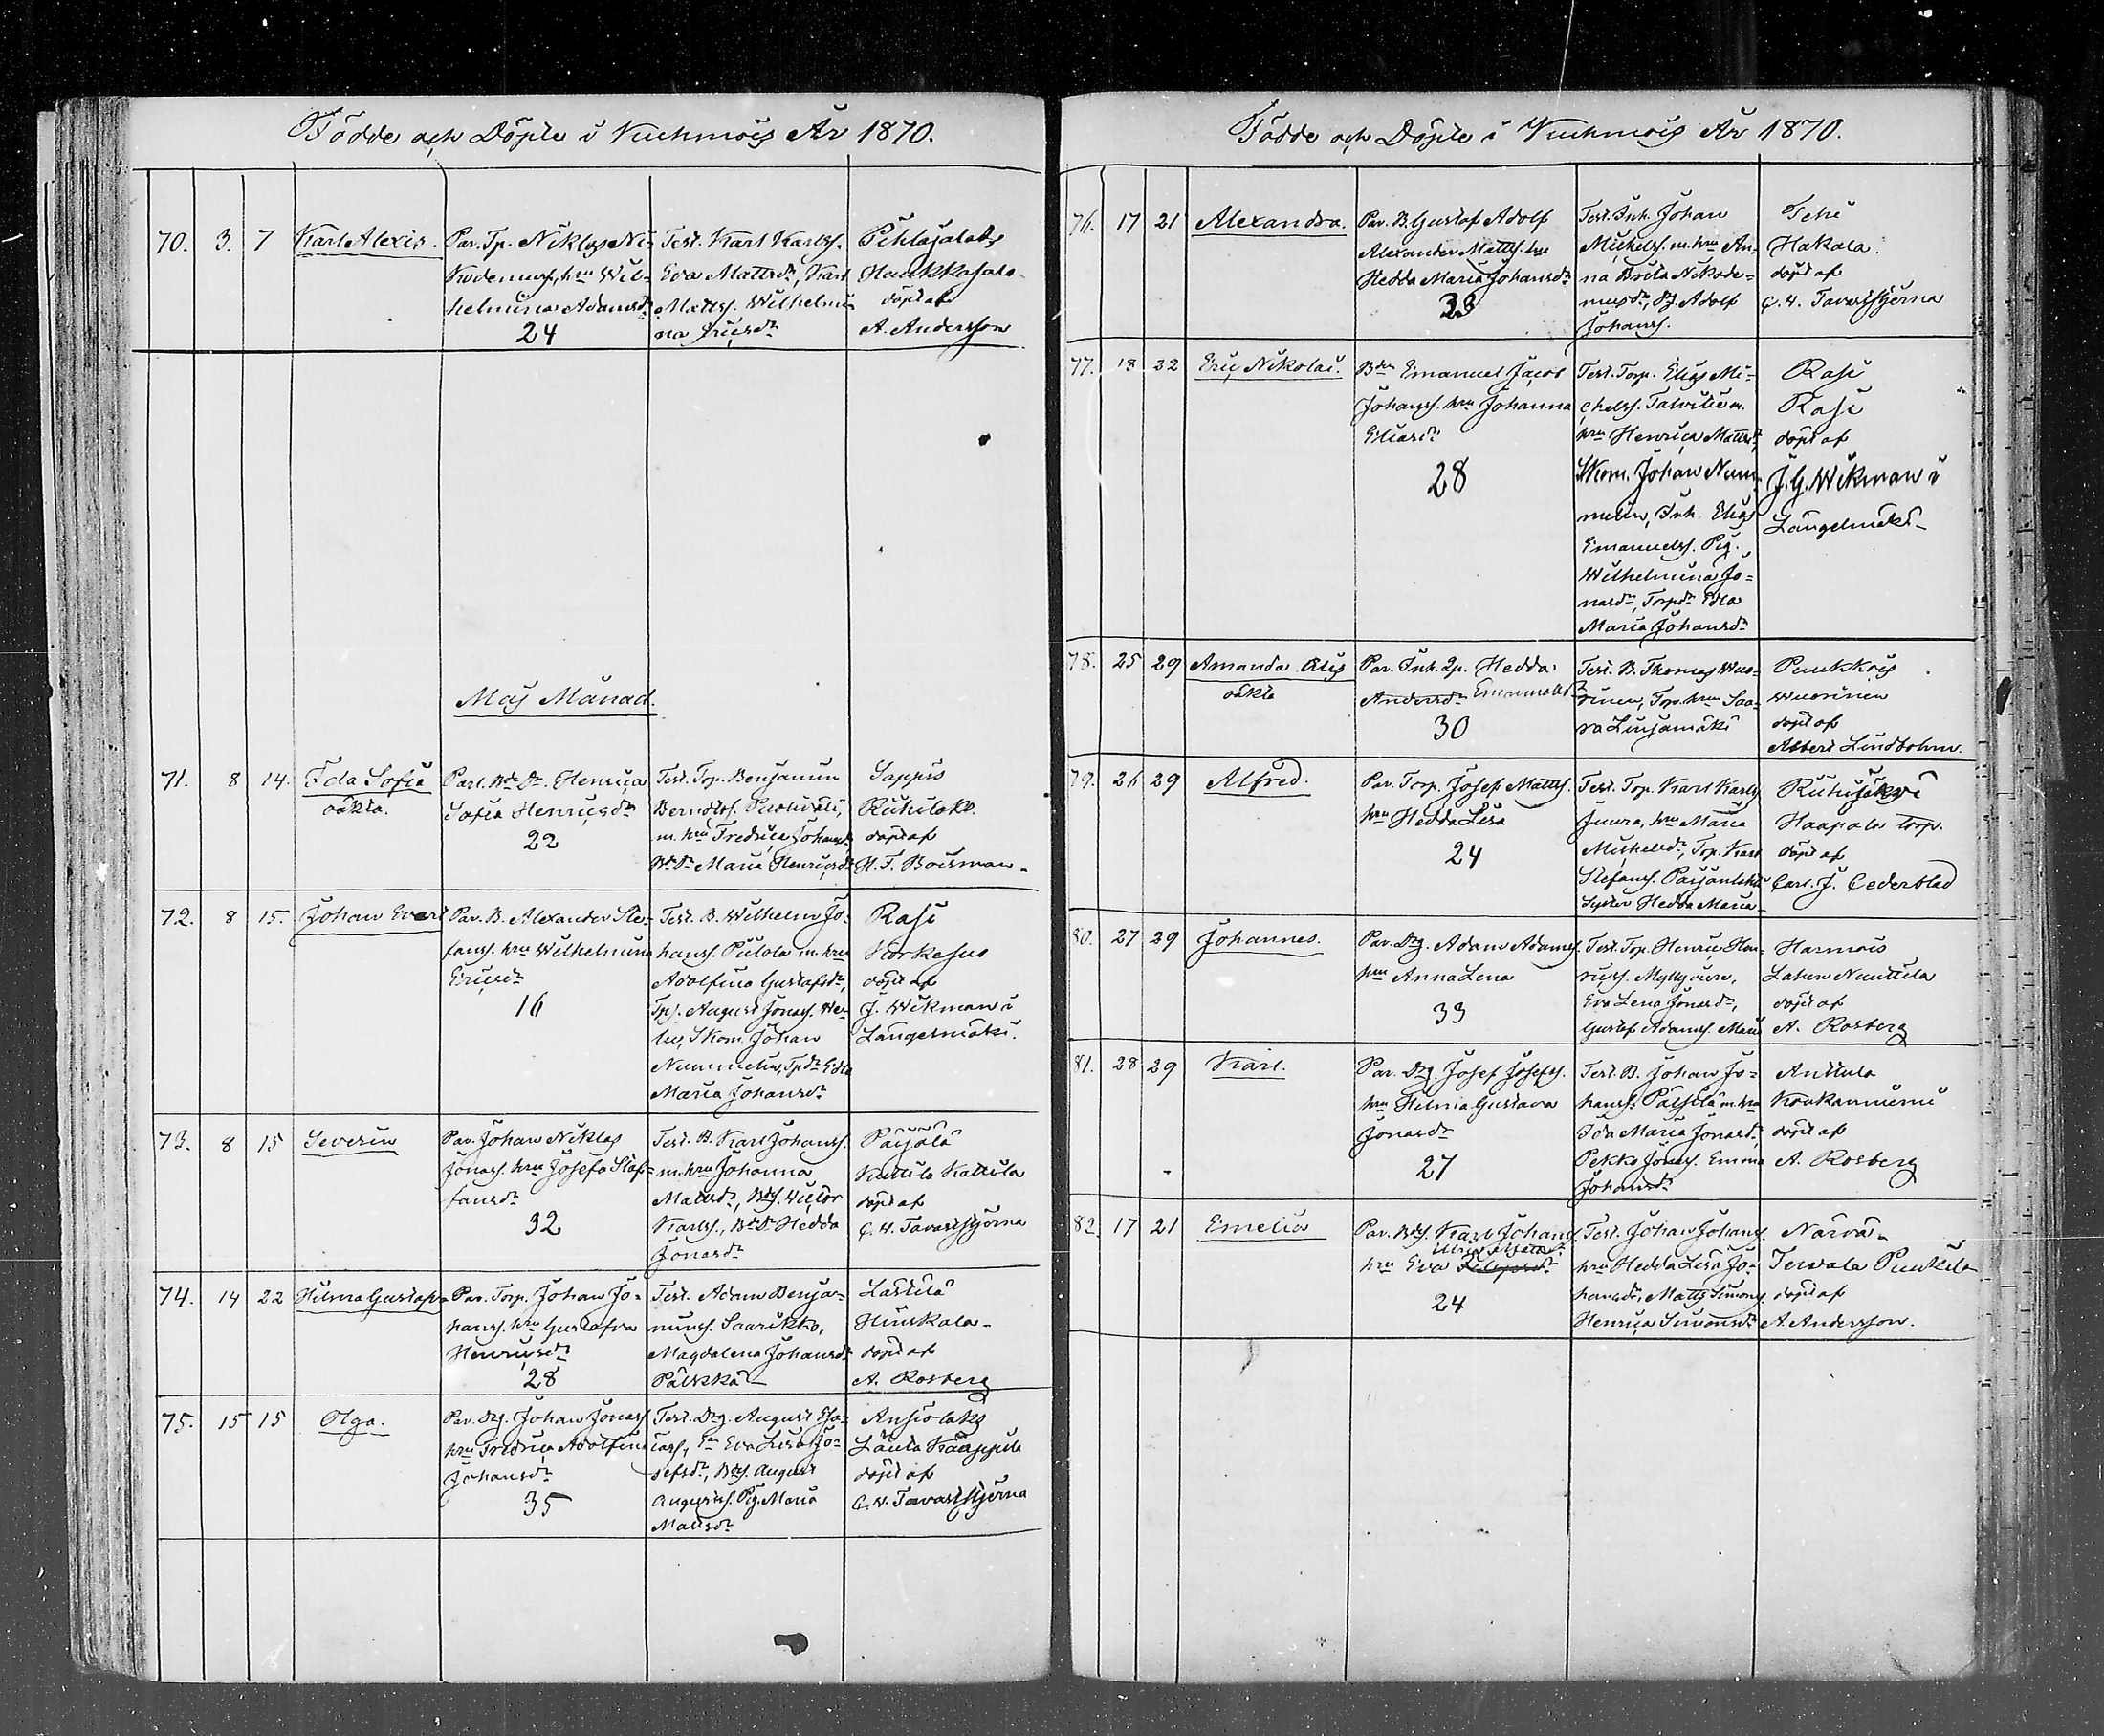 Födde och Döpte i Kuhmois År 1870.
70. 3. 7 Karl Alexis.
Par. Tp. Niklas Ni-
kodemusf., hu Wil-
helmina Adamsdr
24
Test. Karl Karlss.
Eva Mattsdr, Karl
Mattss. Wilhelmi-
na Ericsdr
Pihlajalaks
Haukkasalo
döpt af
A. Andersson
Maj Månad.
71. 8 14. Ida Sofia
oäkta.
Part. Bde Dr. Henrica
Sofia Henricsdr
22
Test. Top. Benjamin
Berndtss.
m. hu Fredrica Johansdr
Bde Dr Maria Henricsdr
Sappis
Riihilaks.
döpt af
H. F. Boisman.
72. 8 15. Johan Evert
Par. B. Alexander Ste-
fanss. hu Wilhelmina
Ericsdr
16
Test. B. Wilhelm Jo-
hanss. Piilola m. hu
Adolfina Gustafsdr,
Tp. August Jonass.
Skom. Johan
Nummelin, Tpdr Edla
Maria Johansdr
Rasi
Korkesuo
döpt af
J. Wikman i
Längelmäki.
73. 8 15 Severin
Par. Johan Niklas
Jonass. hu Josefa Staf-
fansdr
32
Test. B. Karl Johanss.
m. hu Johanna
Mattsdr, Bds. Victor
Karlss., Bde Dr Hedda
Jonasdr
Päijälä
Kuttila Kattila
döpt af
C. H. Tavaststjerna
74. 14 22 Hilma Gustafva
Par. Torp. Johan Jo-
hanss. hu Gustafva
Henricsdr
28
Test. Adam Benja-
minss. Saarikko,
Magdalena Johansdr
Pälkkä
Lästilä
Hinskala
döpt af
A. Rosberg
75. 15 15 Olga.
Par. Drg. Johan Jonass
hu Fredrica Adolfina
Johansdr
35
Test. Drg. August Esa-
iass, Eva Lisa Jo-
sefsdr, Bds. August
Augustss. Pig. Maria
Mattsdr
Ansiolaks
Läula Kääppilä
döpt af
C. H. Tavaststjerna
Födde och Döpte i Kuhmois År 1870.
76. 17 21 Alexandra.
Par. B. Gustaf Adolf
Alexander Mattss. hu
Hedda Maria Johansdr
33
Test. Inh. Johan
Michelss. m. hu An-
na Brita Nikode-
musdr, Adolf
Johanss.
Tehi
Hakala.
döpt af
C. H. Tavaststjerna
77. 18 22 Eric Nikolai.
Bdn Emanuel Jacob
Johanss. hu Johanna
Eliasdr
28
Test. Torp. Elias Mi-
chelss. Talvitie m.
hu Henrica Mattsdr,
Skom. Johan Num-
melin, Inh. Elias
Emanuelss. Pig.
Wilhelmina Jo-
nasdr, Torpdr Edla
Maria Johansdr
Rasi
Rasi
döpt af
J. G. Wikman i
Längelmäki
78. 25 29 Amanda Alis
oäkta
Par. Inh. Qp. Hedda
Andersdr Emanuelsdr
30
Test. B. Thomas Wuo-
rinen, Torp. hu Saa-
ra Linjamäki
Puukkois
Wuorinen
döpt af
Albert Lindbohm.
79. 26 29 Alfred.
Par. Torp. Josef Mattss.
hu Hedda Lisa
24
Test. Top. Karl Karlss
Juura, hu Maria
Michelsdr, Top. Karl
Stefanss.
Syster Hedda Maria
Riihijärvi
Haapala torp.
döpt af
Carl J. Cederblad
80. 27 29 Johannes.
Par. Drg. Adam Adamss.
hu Anna Lena
33
Test. Top. Henric Hen-
ricss. Myllyvuori,
Eva Lena Jonasdr,
Gustaf Adamss. Mari
Harmois
Lahen Nautila
döpt af
A. Rosberg
81. 28 29 Karl.
Par. Drg. Josef Josefss.
hu Helma Gustava
Jonasdr
27
Test. B. Johan Jo-
hanss. Pajsilä m. hu
Ida Maria Jonasdr.
Pekka Jonass. Emma
Johansdr
Anttula
Koukanniemi
döpt af
A. Rosberg
82. 17 21 Emelia
Par. Bds. Karl Johanss
hu Eva
24
Test. Johan Johanss.
hu Hedda Lisa Jo-
hansdr, Matts Simonss.
Henrica Simonsdr
Närvä
Tervala Puukila
döpt af
A. Andersson.